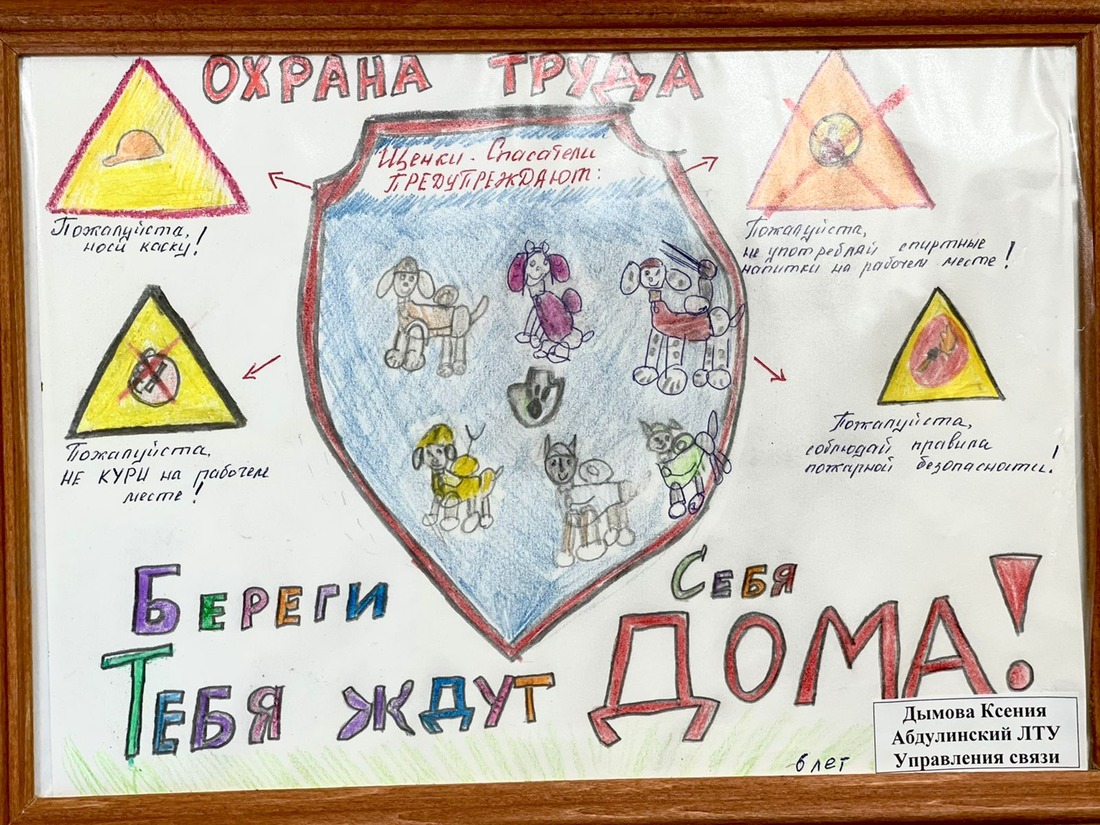 ОХРАНА ТРУДА
Щенки - Спасатели
ПРЕДУПРЕЖДАЮТ:
Пожалуйста,
носи каску!
Пожалуйста,
не употребляй спиртные
напитки на рабочем месте!
Пожалуйста,
НЕ КУРИ на рабочем
месте!
Пожалуйста,
соблюдай правила
пожарной безопасности!
БЕРЕГИ СЕБЯ
ТЕБЯ ЖДУТ ДОМА!
6 лет
Дымова Ксения
Абдулинский ЛТУ
Управления связи